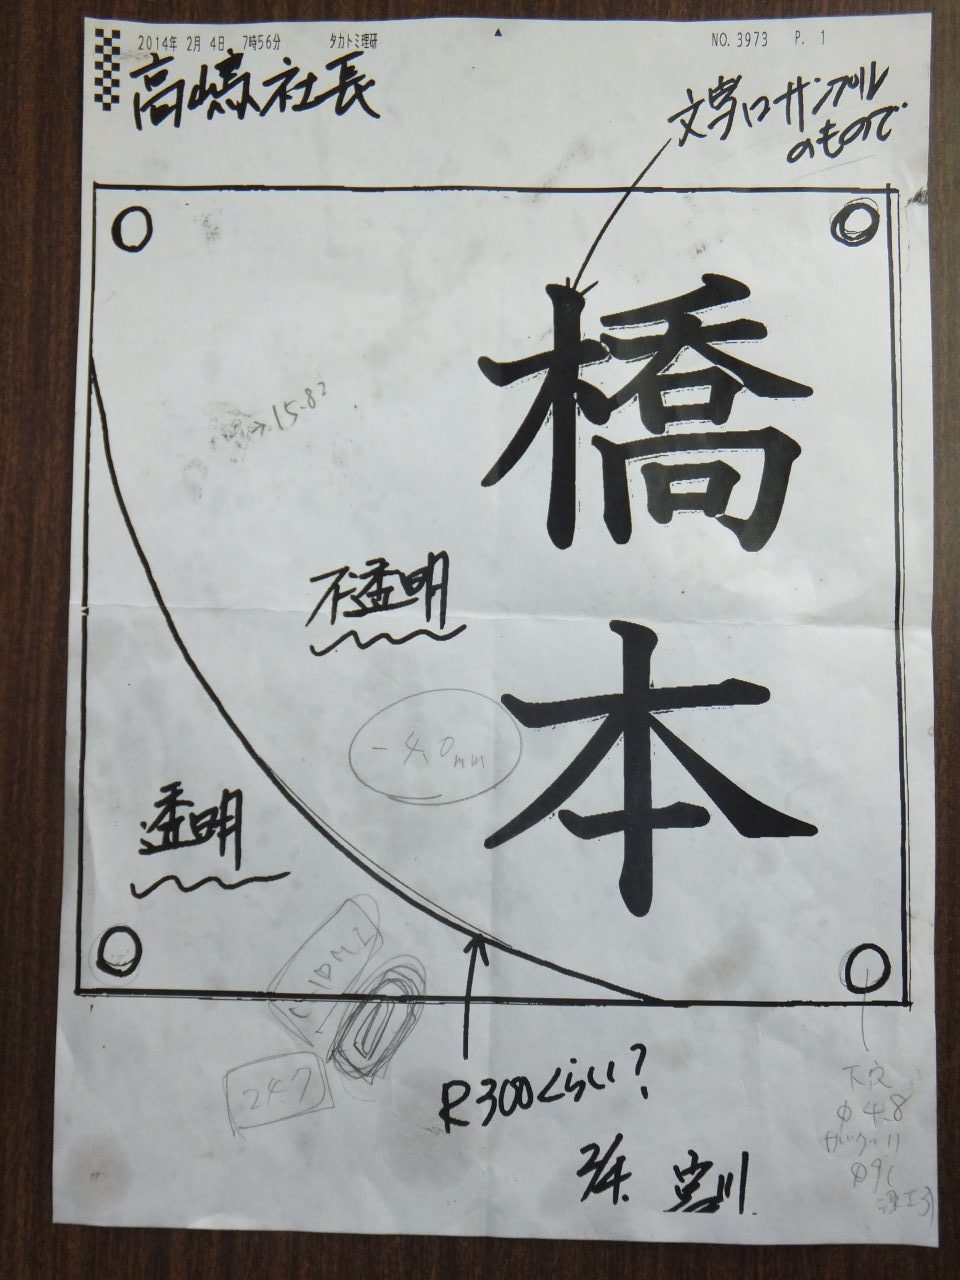 2014年 2月 4日 7時56分 タカトミ理研 NO. 3973 P. 1
高嶋社長
文字はサンプル
のもので
橋
本
→15.82
不透明
-4.0mm
透明
24.7
R300くらい?
2/4. 宮川
下穴
Φ4.8
ザグリ